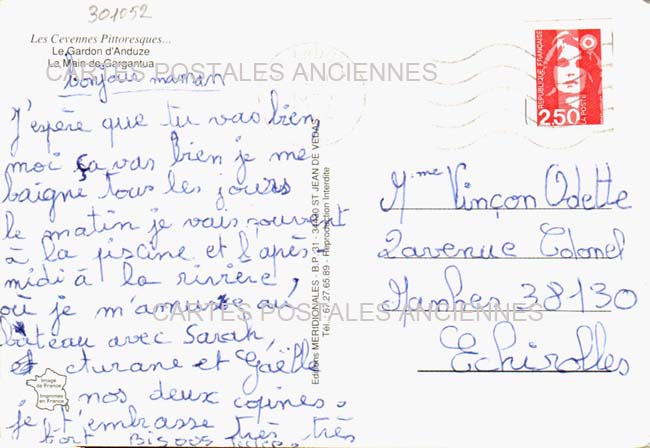 301052
Les Cevennes Pittoresques...
Le Gardon d'Anduze
La Main de Gargantua
CARTES POSTALES ANCIENNES
bonjour maman
J'espère que tu vas bien
moi ça vas bien je me
baigne tous les jours
le matin je vais souvent
à la piscine et l'après
midi à la rivière,
où je m'amuse au
bateau avec Sarah,
et et Gaëlle
nos deux copines.
je t'embrasse très très
fort Bisous
Image
de France
Imprimée
en France
Editions MERIDIONALES - B.P. 211 - 34430 ST JEAN DE VEDAS
Tél. : 67 27 65 89 - Reproduction Interdite
REPUBLIQUE FRANÇAISE
2,50
LA POSTE
Mme Vinçon Odette
2 avenue Colonel
Manhes 38130
CARTES POSTALES ANCIENNES
Echirolles